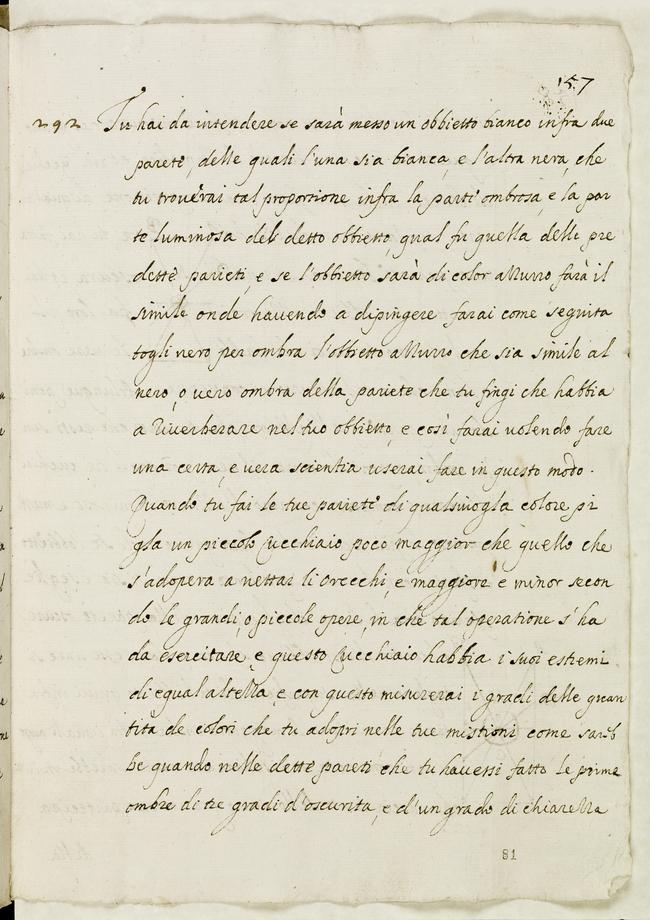 157
292 Tu hai da intendere se sarà messo un obbietto bianco infra due
pareti, delle quali l'una sia bianca, e l'altra nera, che
tu trouerai tal proportione infra la parte ombrosa, e la par
te luminosa del detto obbietto, qual fu quella delle pre
dette parieti, e se l'obbietto sarà di color azzurro farà il
simile onde hauendo a dipingere farai come seguita
togli nero per ombra l'obbietto azzurro che sia simile al
nero, o uero ombra della pariete che tu fingi che habbia
a riuerberare nel tuo obbietto, e così farai uolendo fare
una certa, e uera scientia userai fare in questo modo.
Quando tu fai le tue pariete di qualsiuogla colore pi
gla un piccolo Cucchiaio poco maggior che quello che
s'adopera a nettar li orecchi, e maggiore e minor secon
do le grandi, o piccole opere, in che tal operatione s'ha
da esercitare, e questo Cucchiaio habbia i suoi estremi
di egual altezza, e con questo misurerai i gradi delle quan
tità de colori che tu adopri nelle tue mistioni come sareb
be quando nelle dette pareti che tu hauessi fatto le prime
ombre di tre gradi d'oscurita, e d'un grado di chiarezza
81